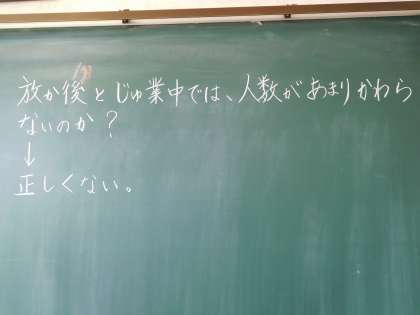 放か後とじゅ業中では、人数があまりかわら
ないのか?
↓
正しくない。